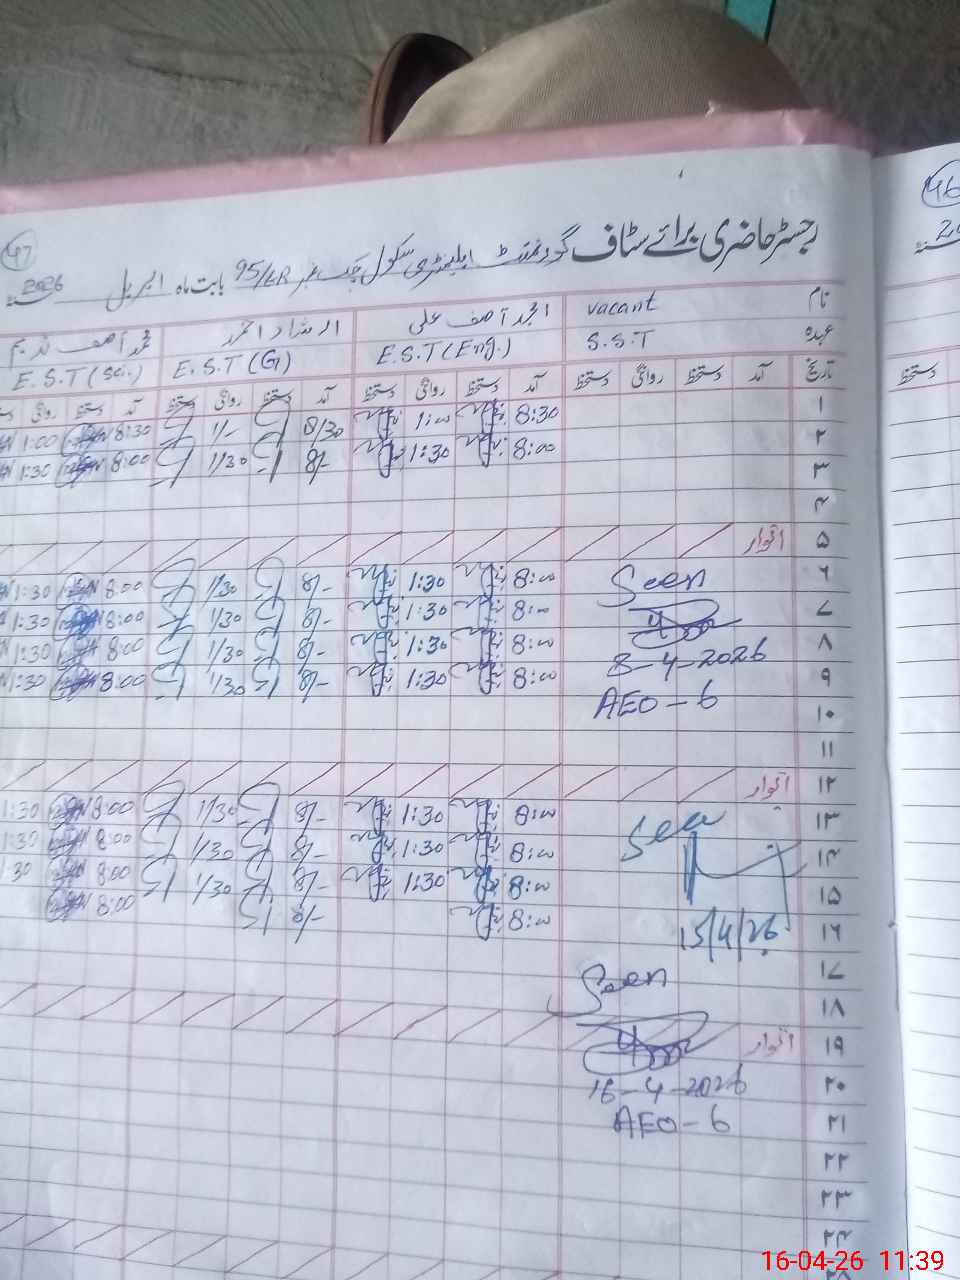 47
46
رجسٹر حاضری برائے سٹاف گورنمنٹ ایلیمنٹری سکول چک نمبر 95/6R بابت ماہ اپریل 2026
نام vacant امجد آصف علی ارشاد احمد محمد آصف ندیم
عہدہ S.S.T E.S.T (Eng.) E.S.T (G) E.S.T (Sci.)
تاریخ آمد دستخط روانگی دستخط آمد دستخط روانگی دستخط آمد دستخط روانگی دستخط آمد دستخط روانگی
دستخط
۱ 8:30 1:00 8/30 1/- 8:30 1:00
۲ 8:00 1:30 8/- 1/30 8:00 1:30
۳
۴
۵ اتوار
۶ 8:00 1:30 8/- 1/30 8:00 1:30
Seen
۷ 8:00 1:30 8/- 1/30 8:00 1:30
۸ 8:00 1:30 8/- 1/30 8:00 1:30
8-4-2026
۹ 8:00 1:30 8/- 1/30 8:00 1:30
AEO-6
۱۰
۱۱
۱۲ اتوار
۱۳ 8:00 1:30 8/- 1/30 8:00 1:30
Seen
۱۴ 8:00 1:30 8/- 1/30 8:00 1:30
۱۵ 8:00 1:30 8/- 1/30 8:00 1:30
۱۶ 8:00 8/- 8:00
15/4/26
۱۷
Seen
۱۸
۱۹ اتوار
۲۰
16-4-2026
۲۱
AEO-6
۲۲
۲۳
۲۴
16-04-26 11:39